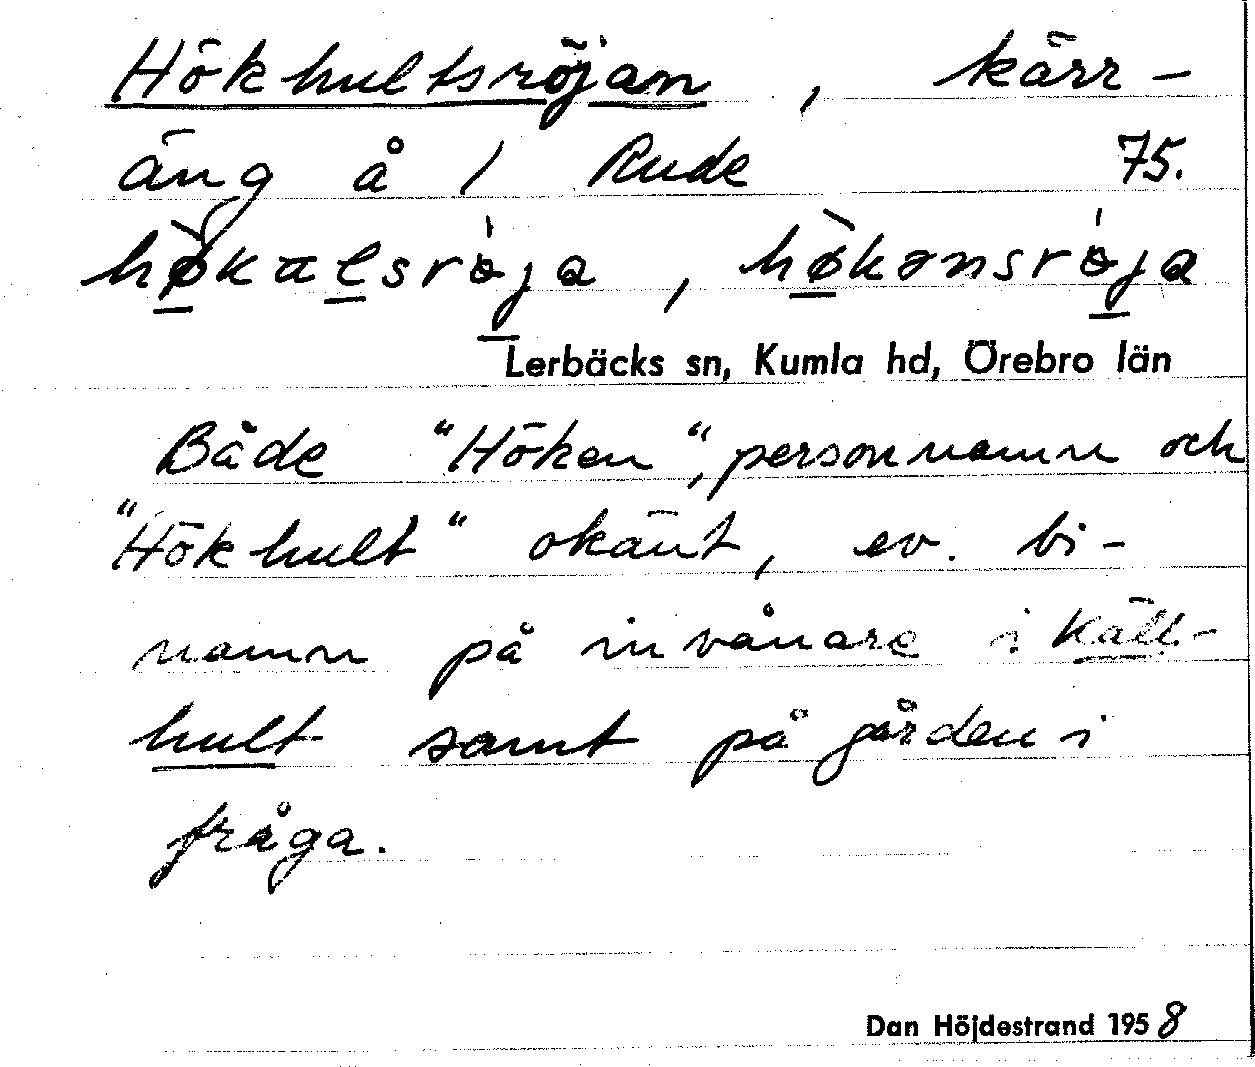 Hökhultsröjan, kärr-
äng å 1 Rude 75.
høkalsrøja, høkønsrøja
Lerbäcks sn, Kumla hd, Örebro län
Både "Höken", personnamn och
"Hökhult" okänt, ev. bi-
namn på invånare i Käll-
hult samt på gården i
fråga.
Dan Höjdestrand 1958